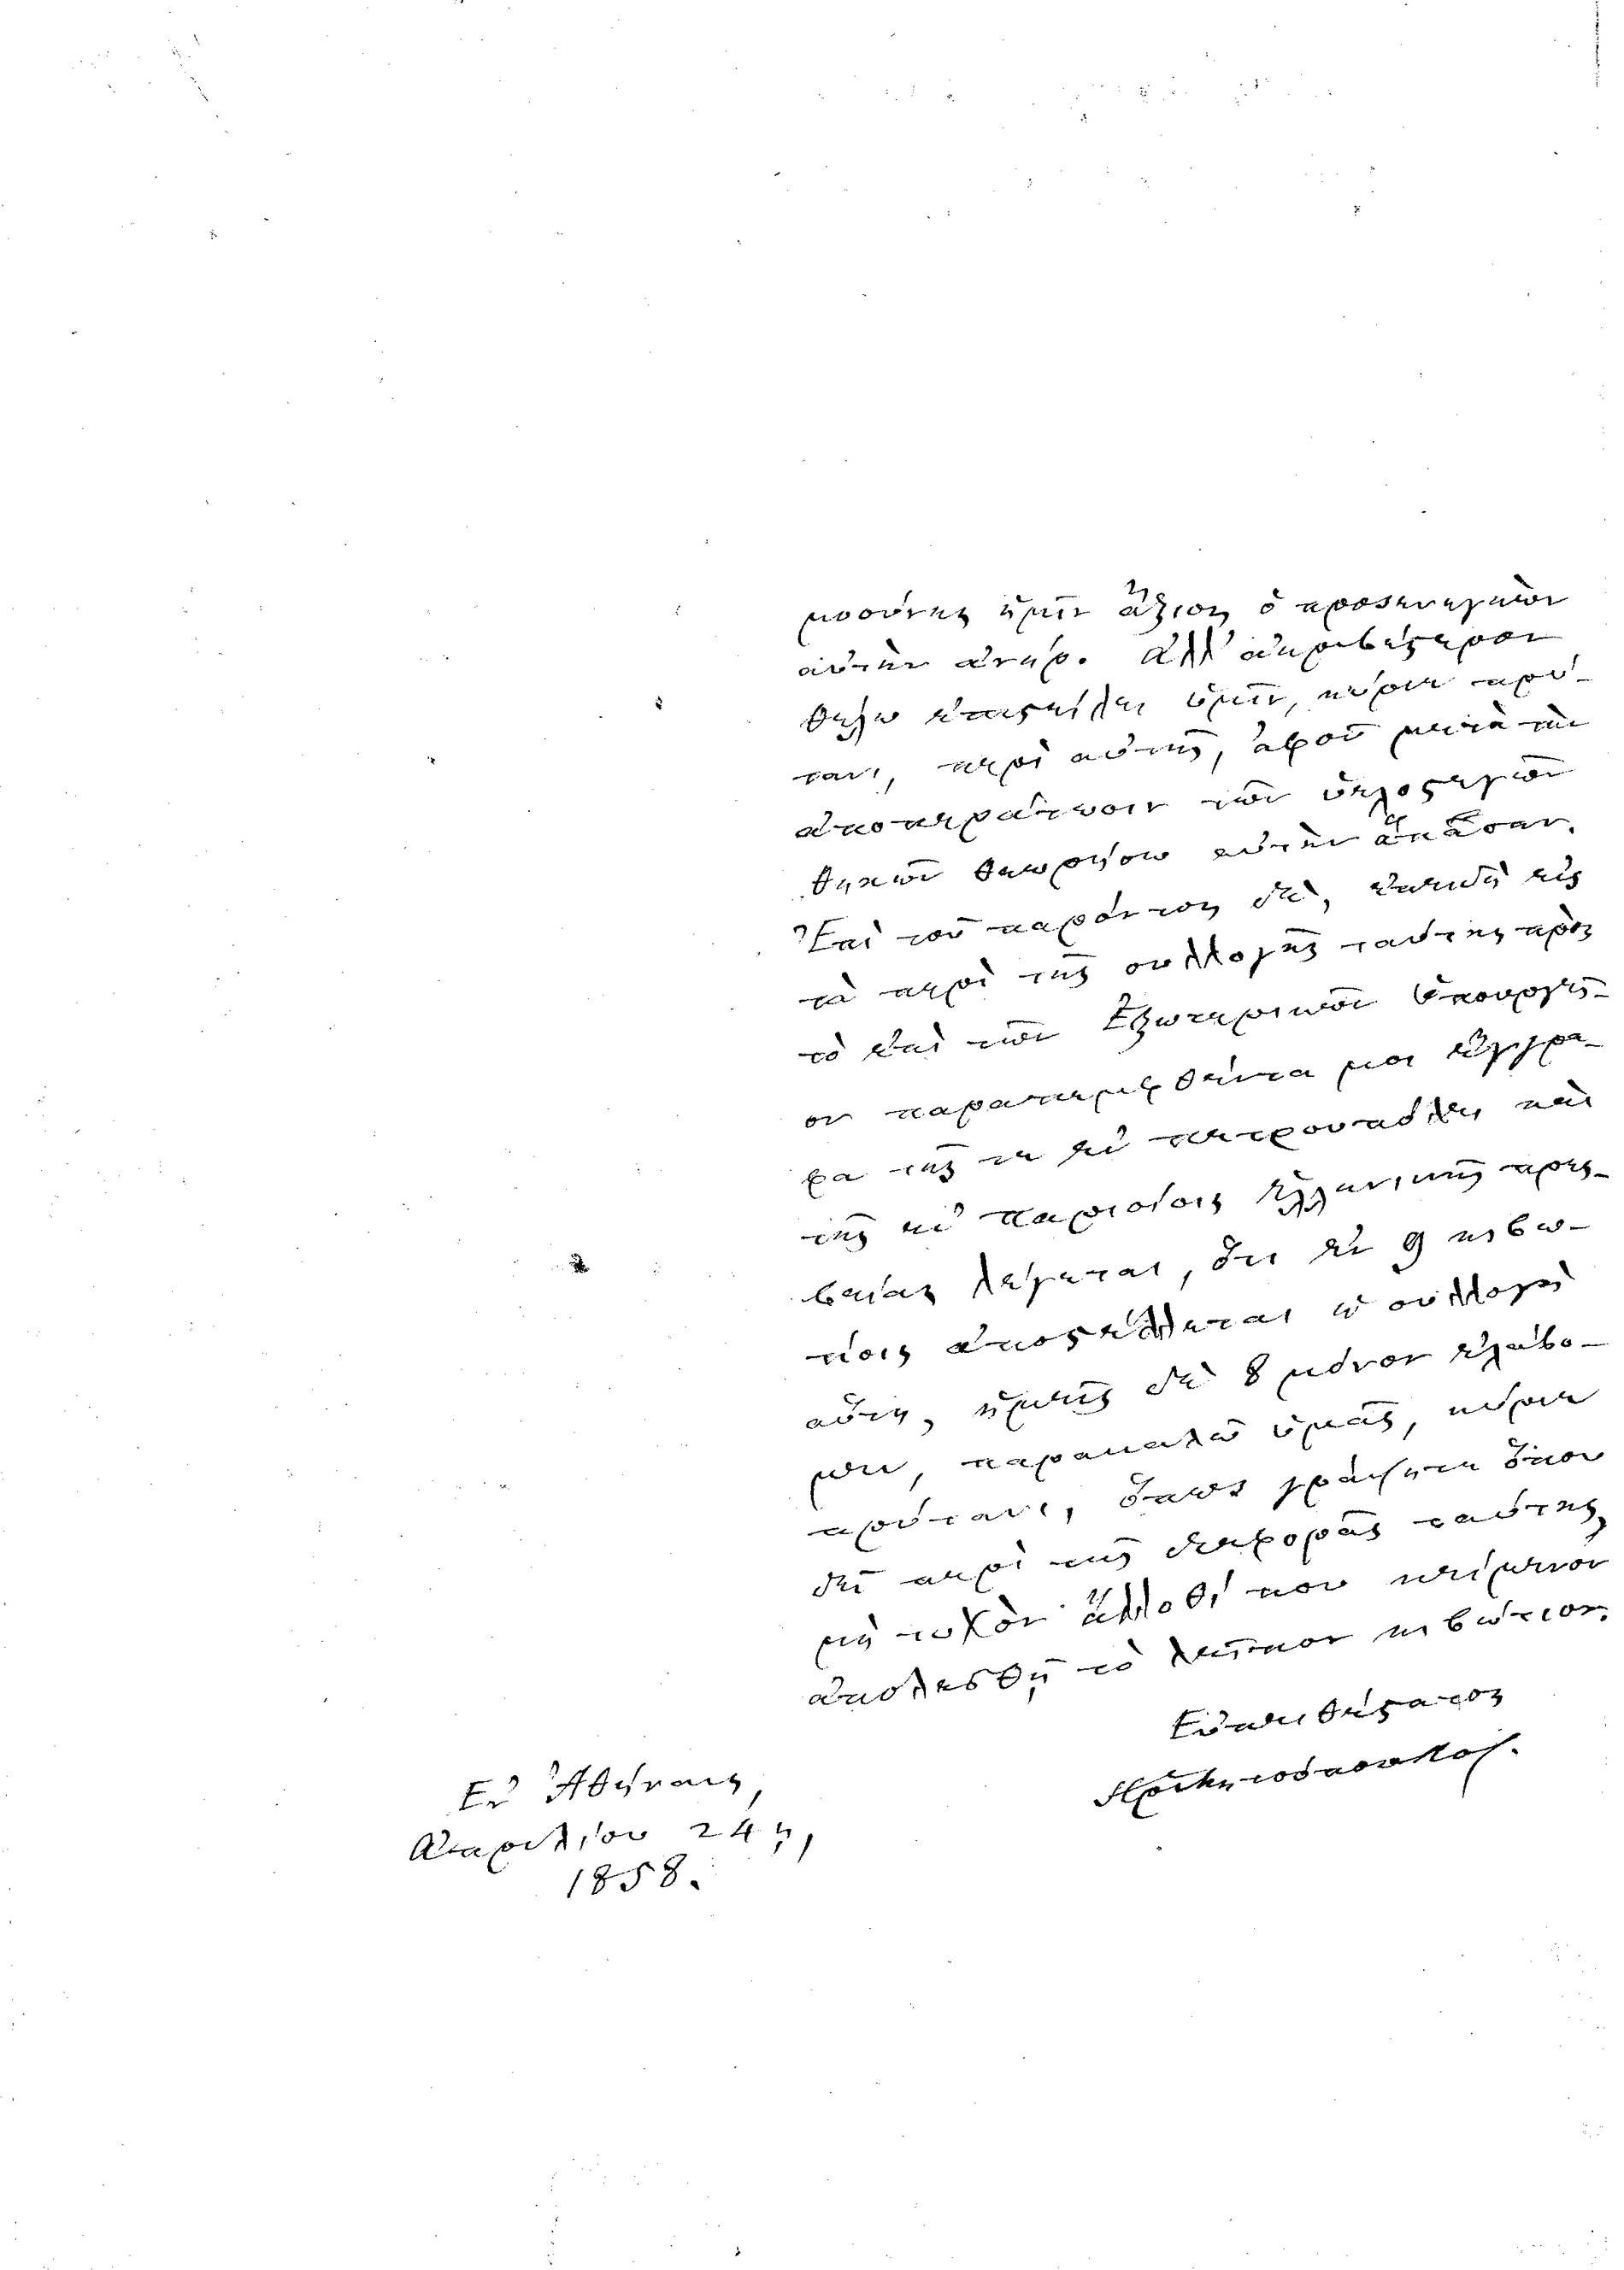 μοσύνης ἡμῖν ἄξιος ὁ προσενεγκὼν
αὐτὴν ἀνήρ. Ἀλλ' ἀκριβέστερον
θέλω ἐπιστείλει ὑμῖν, κύριε πρύ-
τανι, περὶ αὐτῆς, ἀφοῦ μετὰ τὴν
ἀποπεράτωσιν τῶν ὑελοστεγῶν
θηκῶν θεωρήσω αὐτὴν ἅπασαν.
Ἐπὶ τοῦ παρόντος δέ, ἐπειδὴ εἰς
τὰ περὶ τῆς συλλογῆς ταύτης πρὸς
τὸ ἐπὶ τῶν Ἐξωτερικῶν Ὑπουργεῖ-
ον παραπεμφθέντα μοι ἔγγρα-
φα τῆς τε ἐν Πετρουπόλει καὶ
τῆς ἐν Παρισίοις Ἑλληνικῆς πρεσ-
βείας λέγεται, ὅτι ἐν 9 κιβω-
τίοις ἀποστέλλεται ἡ συλλογὴ
αὕτη, ἡμεῖς δὲ 8 μόνον ἐλάβο-
μεν, παρακαλῶ ὑμᾶς, κύριε
πρύτανι, ὅπως γράψητε ὅπου
δεῖ περὶ τῆς διαφορᾶς ταύτης,
μὴ τυχὸν ἄλλοθί που κείμενον
ἀπολεσθῇ τὸ λεῖπον κιβώτιον.
Εὐπειθέστατος
Πιττάκης
Ἐν Ἀθήναις,
Ἀπριλίου 24ῃ,
1858.